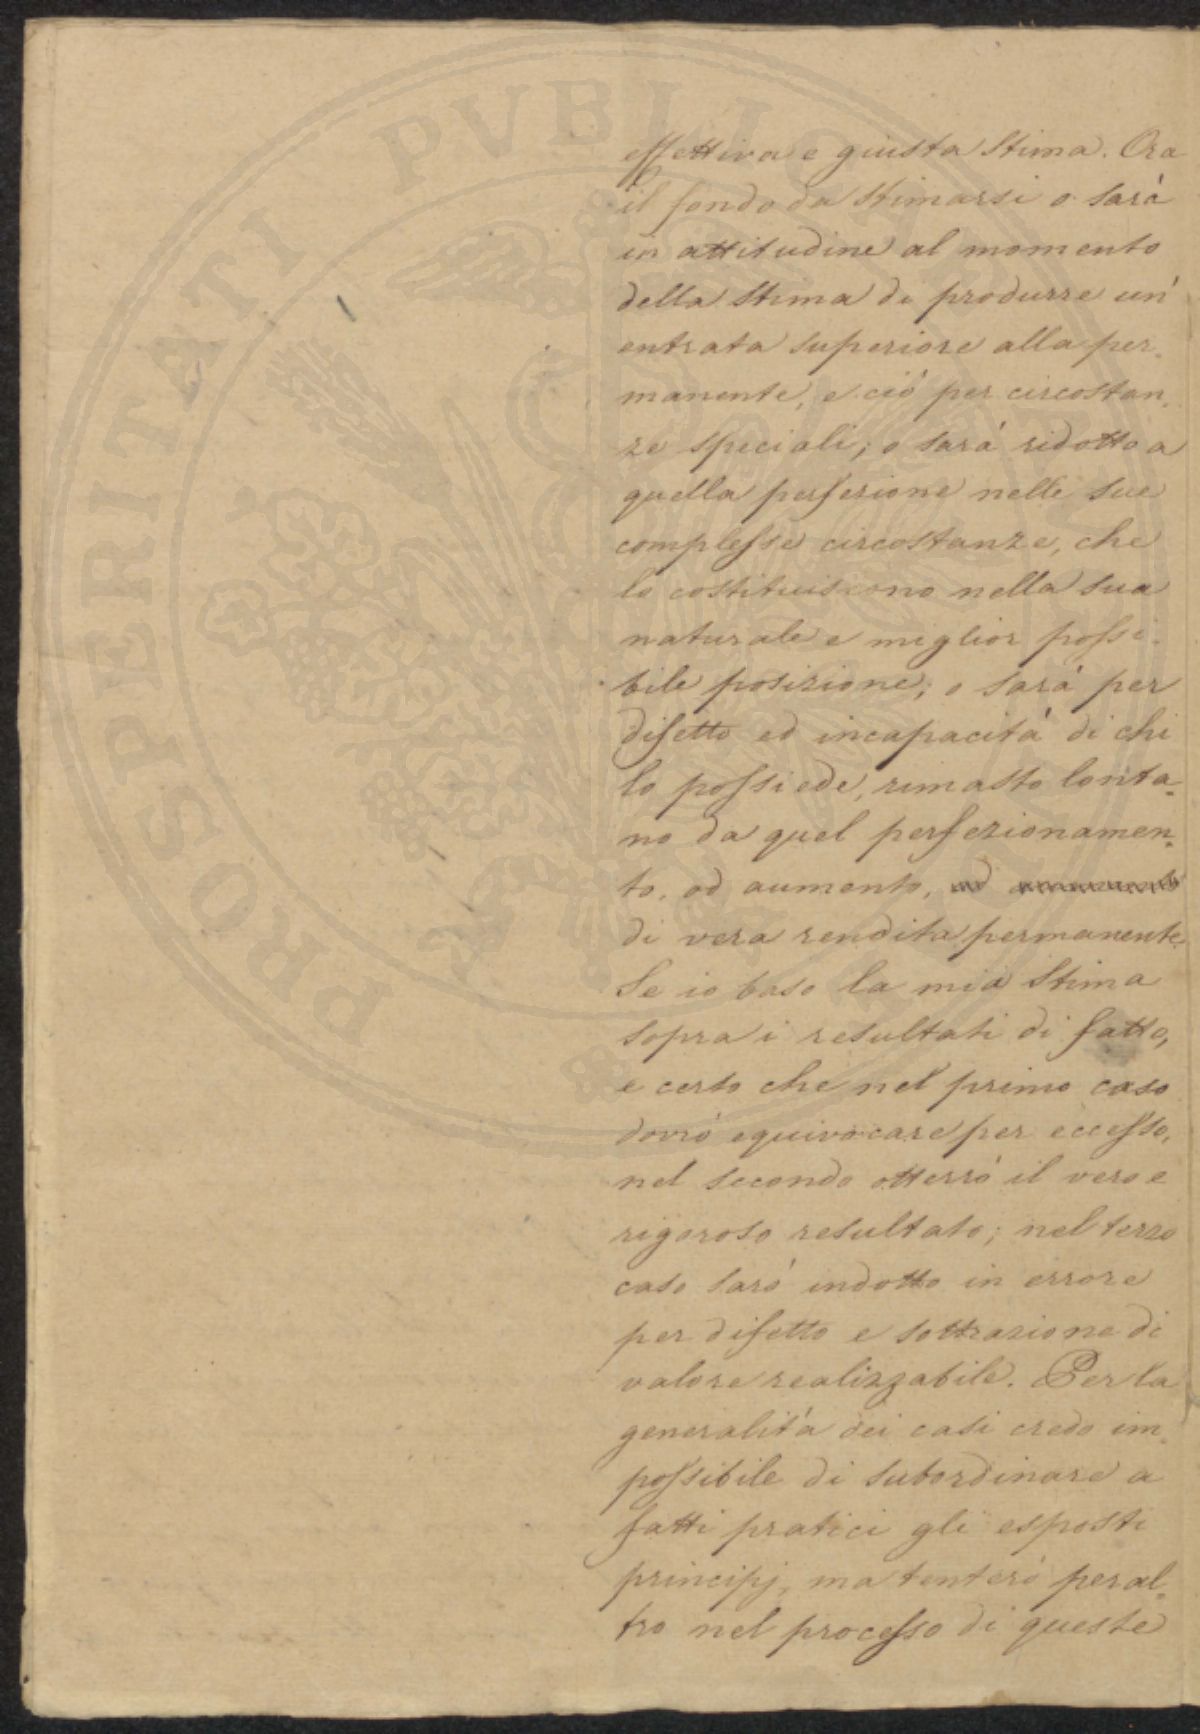 PROSPERITATI PVBLICAE
effettiva e giusta Stima. Ora
il fondo da Stimarsi o sarà
in attitudine al momento
della Stima di produrre un'
entrata superiore alla per-
manente, e ciò per circostan-
ze speciali; o sarà ridotto a
quella perfezione nelle sue
complesse circostanze, che
lo costituiscono nella sua
naturale e miglior possi-
bile posizione; o sarà per
difetto ed incapacità di chi
lo possiede, rimasto lonta-
no da quel perfezionamen-
to, od aumento,
di vera rendita permanente.
Se io baso la mia Stima
sopra i resultati di fatto,
è certo che nel primo caso
dovrò equivocare per eccesso,
nel secondo otterrò il vero e
rigoroso resultato; nel terzo
caso sarò indotto in errore
per difetto e sottrazione di
valore realizzabile. Per la
generalità dei casi credo im-
possibile di subordinare a
fatti pratici gli esposti
principj, ma tenterò peral-
tro nel processo di queste